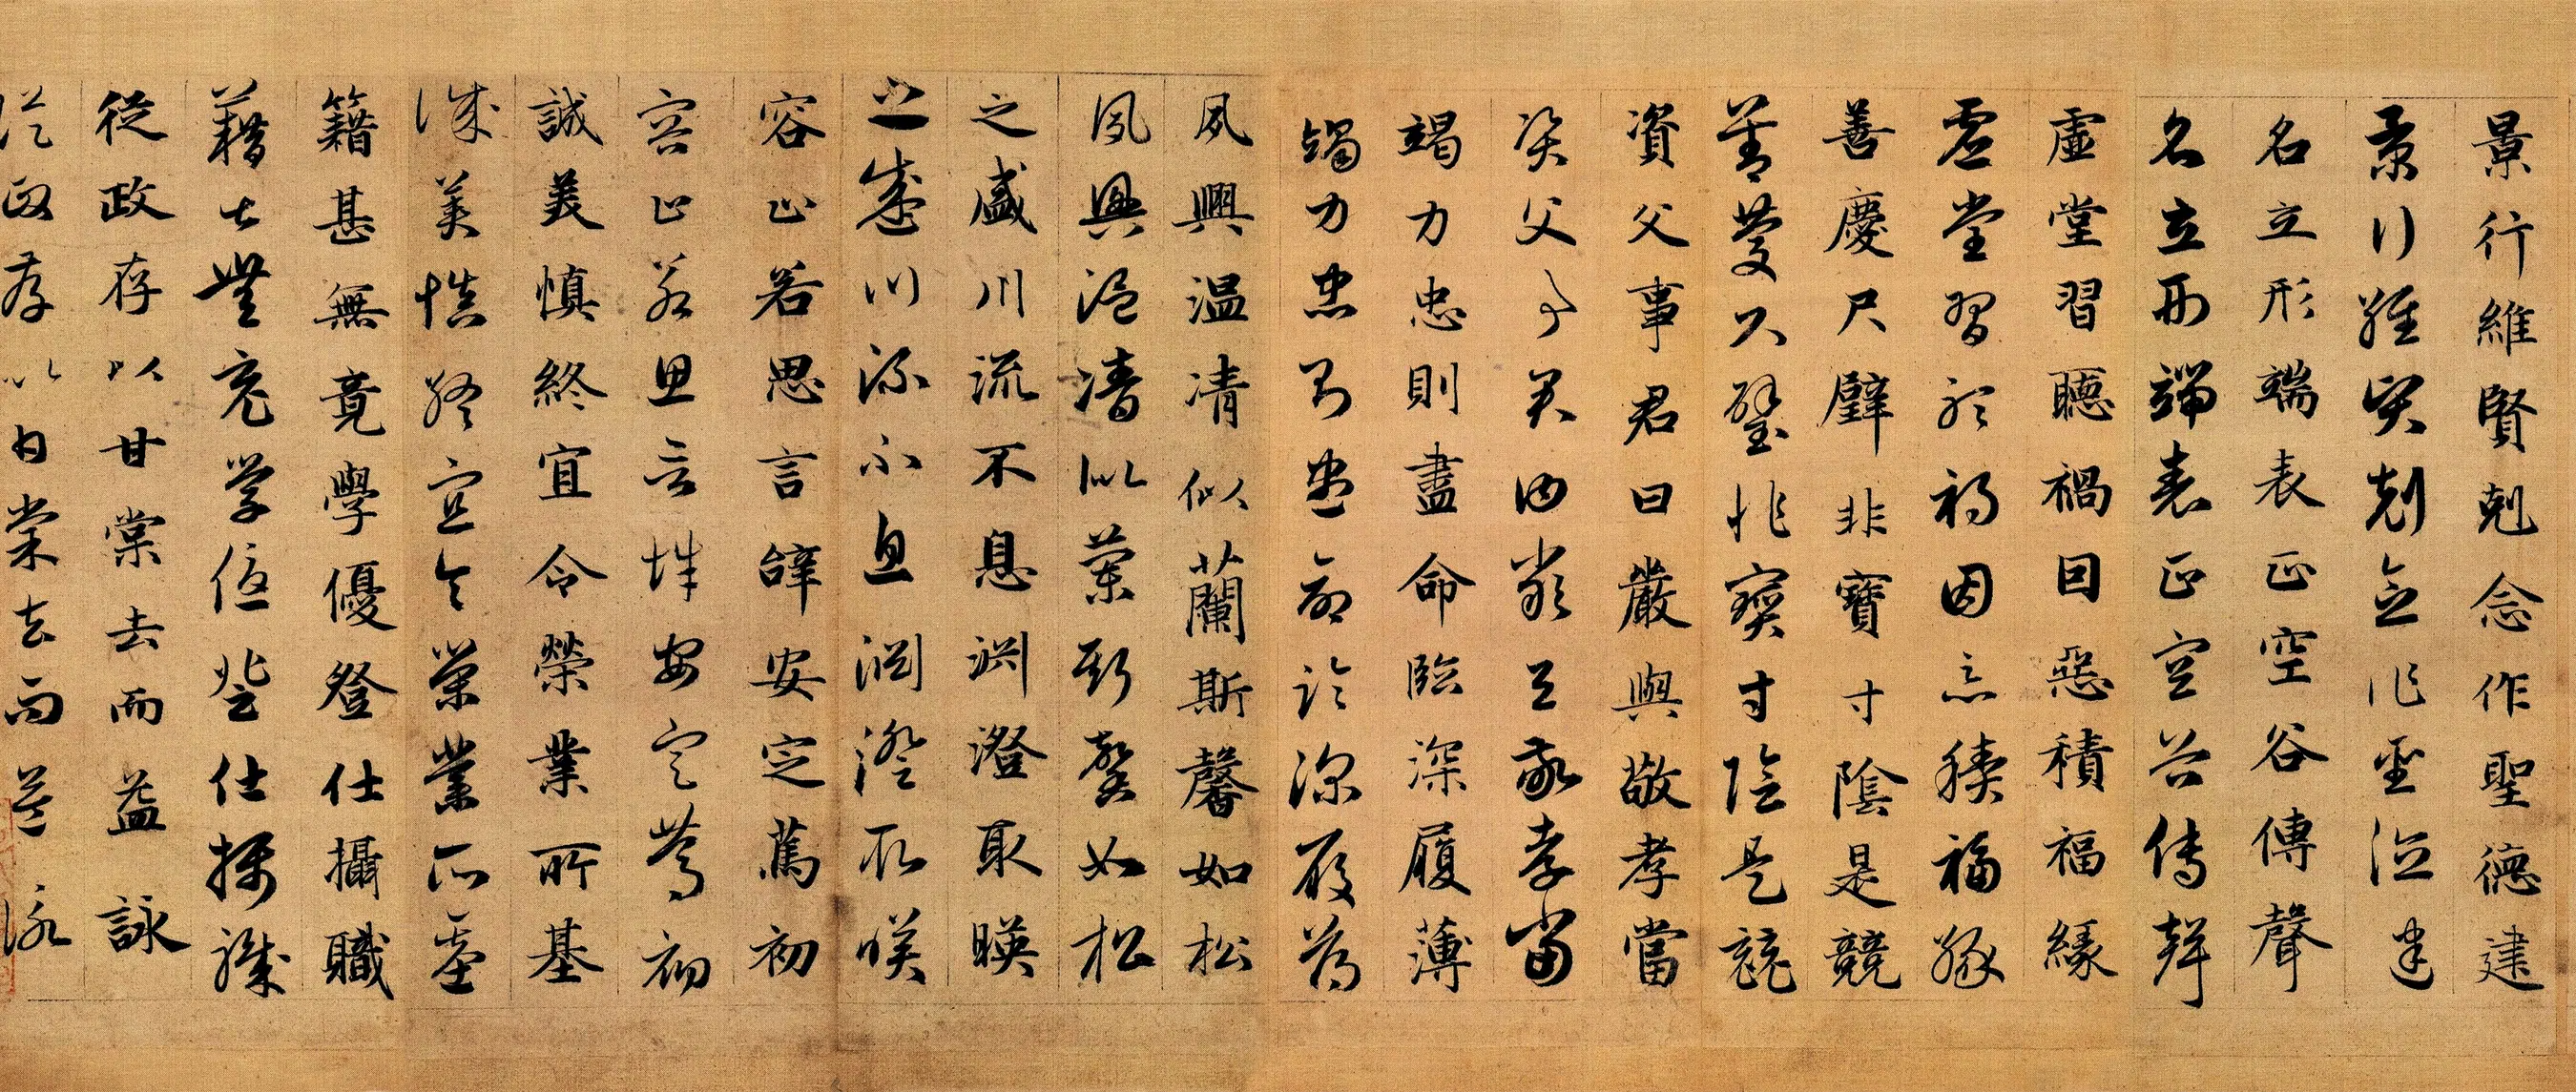 景行維賢剋念作聖德建
景行維賢剋念作聖德建
名立形端表正空谷傳聲
名立形端表正空谷傳聲
虛堂習聽禍因惡積福緣
虛堂習聽禍因惡積福緣
善慶尺璧非寶寸陰是競
善慶尺璧非寶寸陰是競
資父事君曰嚴與敬孝當
資父事君曰嚴與敬孝當
竭力忠則盡命臨深履薄
竭力忠則盡命臨深履薄
夙興温凊似蘭斯馨如松
夙興温凊似蘭斯馨如松
之盛川流不息淵澄取暎
之盛川流不息淵澄取暎
容止若思言辭安定篤初
容止若思言辭安定篤初
誠美慎終宜令榮業所基
誠美慎終宜令榮業所基
籍甚無竟學優登仕攝職
籍甚無竟學優登仕攝職
從政存以甘棠去而益詠
從政存以甘棠去而益詠